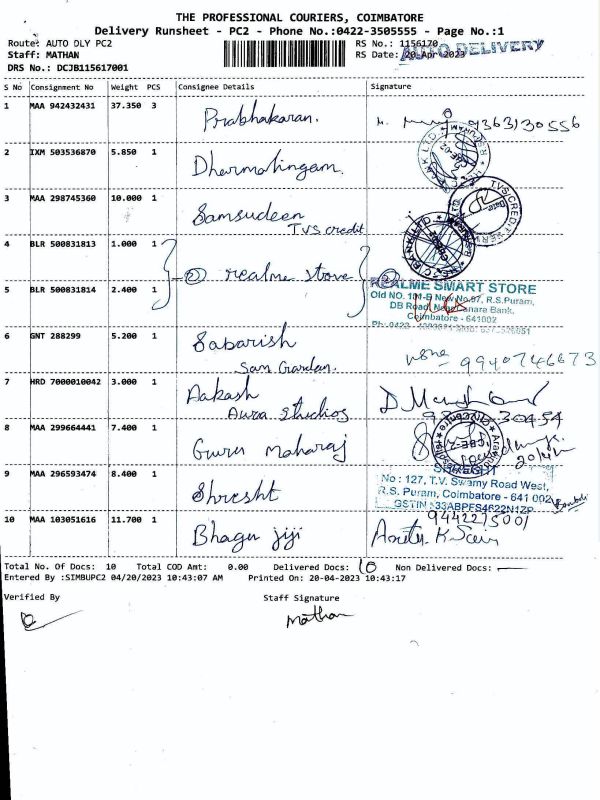 THE PROFESSIONAL COURIERS, COIMBATORE
Delivery Runsheet - PC2 - Phone No.:0422-3505555 - Page No.:1
Route: AUTO DLY PC2
RS No.: 1156170
AUTO DELIVERY
Staff: MATHAN
RS Date: 20 Apr 2023
DRS No.: DCJB115617001
S No Consignment No Weight PCS Consignee Details Signature
1 MAA 942432431 37.350 3 Prabhakaran. 9363130556
2 IXM 503536870 5.850 1 Dharmalingam.
3 MAA 298745360 10.000 1 Samsudeen
TVS credit
4 BLR 500831813 1.000 1
② realme store ②
5 BLR 500831814 2.400 1
REALME SMART STORE
Old NO. 101-B New No.97, R.S.Puram,
DB Road, Near Canara Bank,
Coimbatore - 641002
6 GNT 288299 5.200 1 Sabarish
San Garden. 9940746673
7 HRD 7000010042 3.000 1 Aakash
Aura Studios
8 MAA 299664441 7.400 1 Guru Maharaj
9 MAA 296593474 8.400 1 Shresht
SHRESHT
No : 127, T.V. Swamy Road West,
R.S. Puram, Coimbatore - 641 002
GSTIN : 33ABPFS4622N1ZP
9442275001
10 MAA 103051616 11.700 1 Bhagu jiji
Total No. Of Docs: 10 Total COD Amt: 0.00 Delivered Docs: 10 Non Delivered Docs: —
Entered By :SIMBUPC2 04/20/2023 10:43:07 AM Printed On: 20-04-2023 10:43:17
Verified By Staff Signature
Mathan